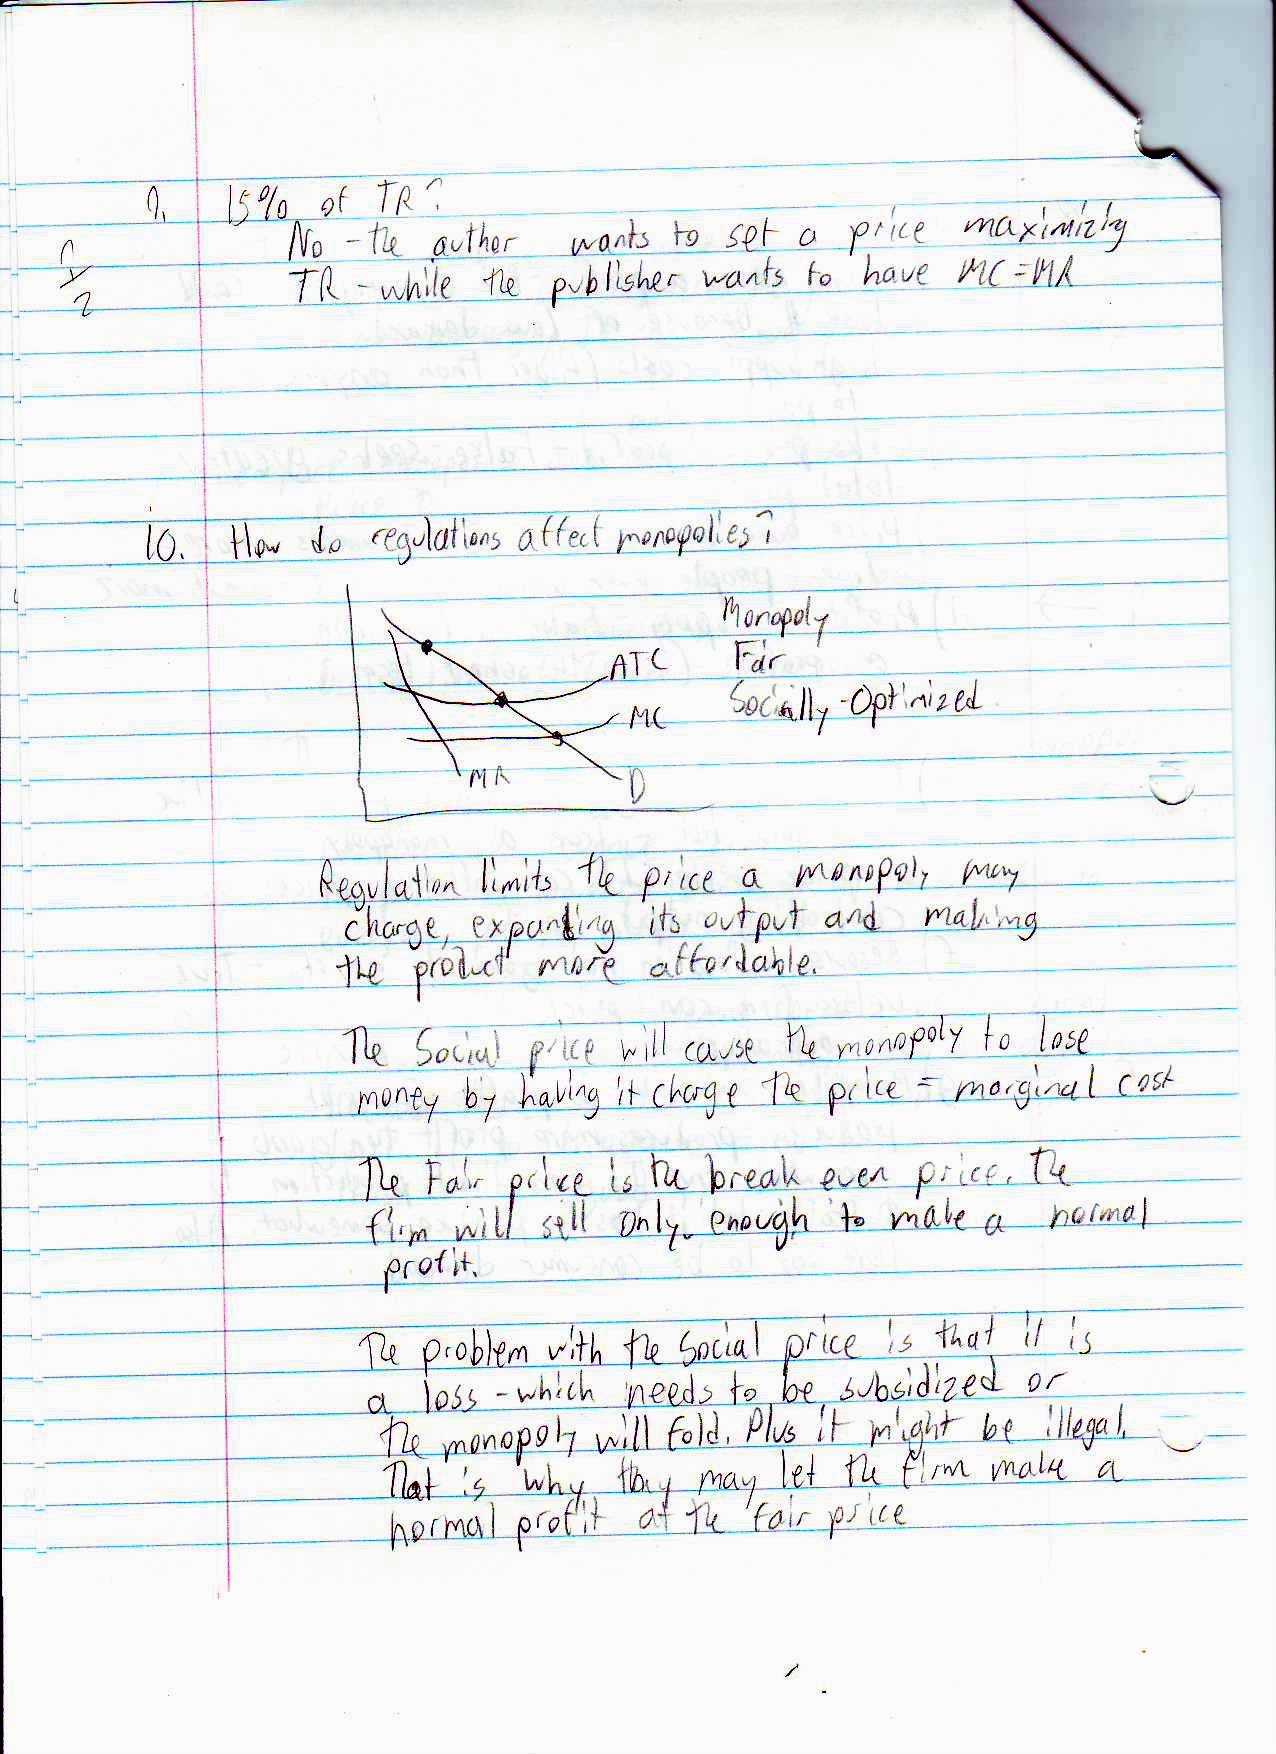 9. 15% of TR?
No - the author wants to set a price maximizing
TR - while the publisher wants to have MC = MR
10. How do regulations affect monopolies?
Monopoly
Fair
Socially-Optimized
ATC
MC
MR
D
Regulation limits the price a monopoly may
charge, expanding its output and making
the product more affordable.
The Social price will cause the monopoly to lose
money by having it charge the price = marginal cost
The Fair price is the break even price. The
firm will sell only enough to make a normal
profit.
The problem with the Social price is that it is
a loss - which needs to be subsidized or
the monopoly will fold. Plus it might be illegal.
That is why they may let the firm make a
normal profit at the fair price